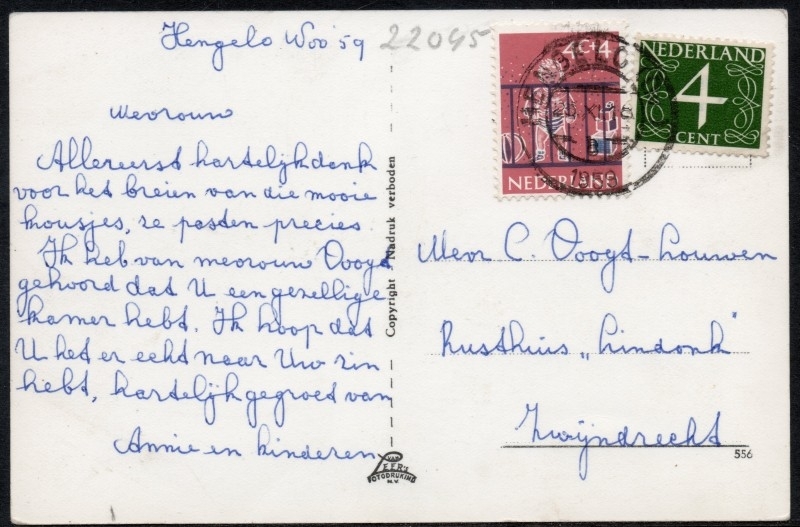 Hengelo Woo '59
22045
Mevrouw
Allereerst hartelijk dank
voor het breien van die mooie
kousjes, ze pasten precies.
Ik heb van mevrouw Voogt
gehoord dat U een gezellige
kamer hebt. Ik hoop dat
U het er echt naar Uw zin
hebt, hartelijk gegroet van
Annie en kinderen
Copyright Nadruk verboden
VAN LEER'S
FOTODRUKIND
N.V.
4C+4
NEDERLAND
NEDERLAND
4
CENT
HENGELO
1959
Mevr C. Voogt-Louwen
Rusthuis „Lindonk"
Zwijndrecht
556